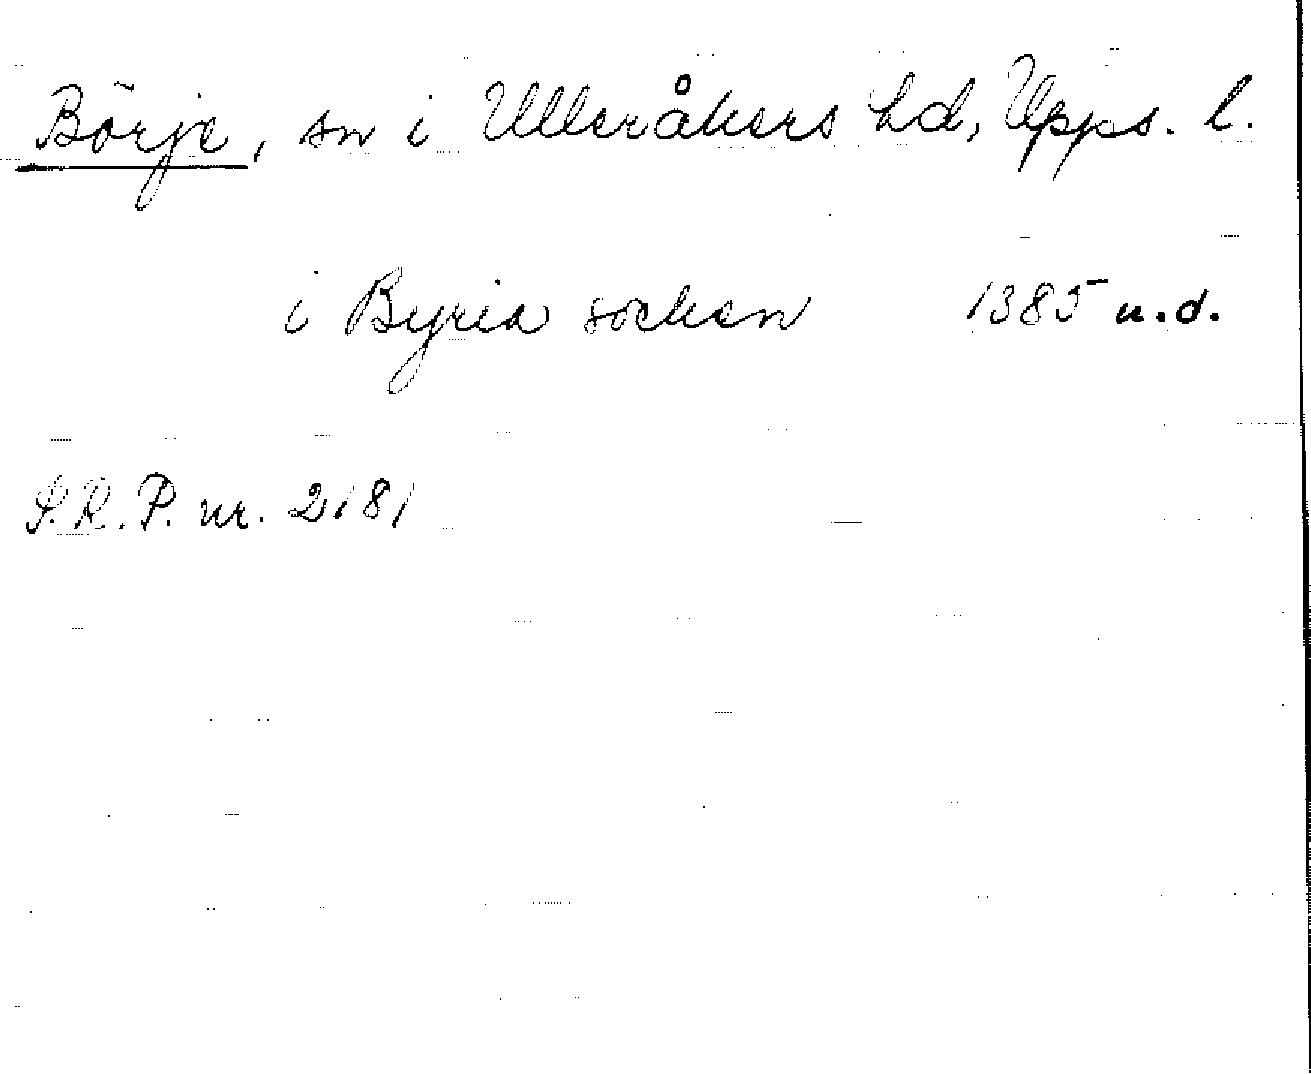 Börje, sn i Ulleråkers hd, Upps. l.
i Byria socken 1385 u.d.
S.R.P. nr. 2181